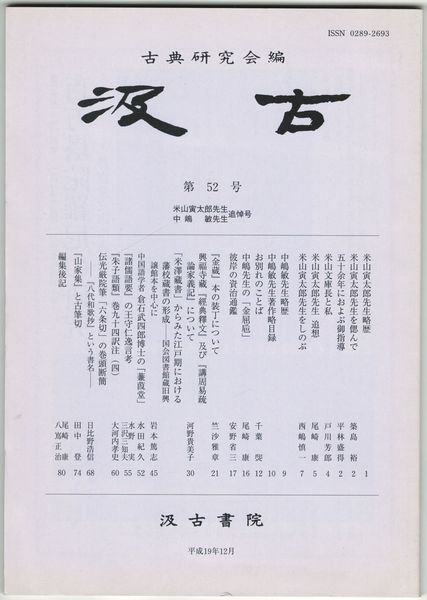 ISSN 0289-2693
古典研究会編
汲古
第 52 号
米山寅太郎先生
中嶋 敏先生
追悼号
米山寅太郎先生略歴 1
米山寅太郎先生を偲んで 築島 裕 2
五十余年におよぶ御指導 平林盛得 2
米山文庫長と私 戸川芳郎 4
米山寅太郎先生 追想 尾崎 康 5
米山寅太郎先生をしのぶ 西嶋慎一 7
中嶋敏先生略歴 9
中嶋敏先生著作略目録 10
お別れのことば 千葉 12
中嶋先生の「金屈卮」 尾崎 康 16
彼岸の資治通鑑 安野省三 17
『金蔵』本の装丁について 竺沙雅章 21
興福寺蔵『経典釋文』及び『講周易疏
論家義記』について 河野貴美子 30
「米澤蔵書」からみた江戸期における
藩校蔵書の形成――国会図書館蔵旧興
譲館本を中心に 岩本篤志 45
中国語学者 倉石武四郎博士の『蒹葭堂』 水田紀久 52
『諸儒語要』の王守仁逸言考 水野 実
三沢三知夫 55
『朱子語類』巻九十四訳注（四） 大河内孝史 60
伝光厳院筆「六条切」の巻頭断簡
――『八代和歌抄』という書名―― 日比野浩信 68
『山家集』と古筆切 田中 登 74
編集後記 尾崎 康
八嶌正治 80
汲古書院
平成19年12月